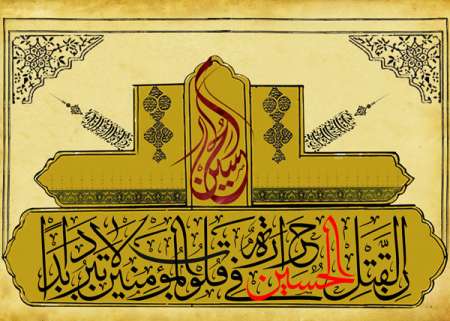 الحسين
ان لقتل الحسين حرارة في قلوب المؤمنين لا تبرد ابدا